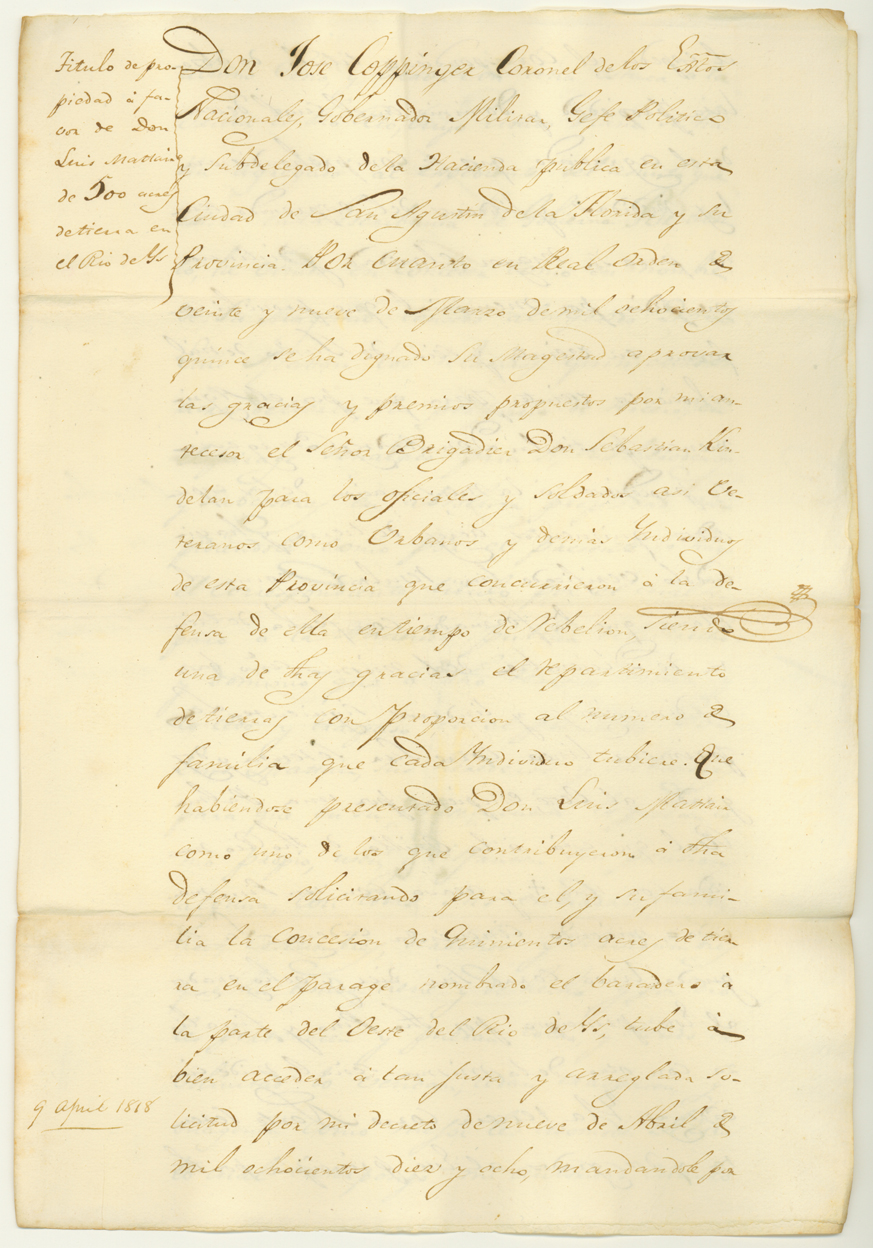 Titulo de pro-
piedad à fa-
vor de Don
Luis Mattair
de 500 acres
de tierra en
el Rio de Ys
Don Jose Coppinger Coronel de los Extos
Nacionales, Gobernador Militar, Gefe Politico
y Subdelegado de la Hacienda publica en esta
Ciudad de San Agustin de la Florida y su
Provincia. Por cuanto en Real orden de
veinte y nueve de Marzo de mil ochocientos
quince se ha dignado Su Magestad aprovar
las gracias y premios propuestos por mi an-
tecesor el Señor Brigadier Don Sebastian Kin-
delan para los oficiales y soldados asi Ve-
teranos como Urbanos y demas Yndividuos
de esta Provincia que concurrieron à la de-
fensa de ella en tiempo de Rebelion, siendo
una de thas gracias el repartimiento
de tierras con proporcion al numero de
familia que cada Yndividuo tubiere. Que
habiendose presentado Don Luis Mattair
como uno de los que contribuyeron à tha
defensa solicitando para el, y su fami-
lia la concesion de Quinientos acres de tier-
ra en el parage nombrado el baradero à
la parte del Oeste del Rio de Ys, tube à
bien acceder à tan justa y arreglada so-
licitud por mi decreto de nueve de Abril de
mil ochocientos diez y ocho, mandandole por
9 April 1818